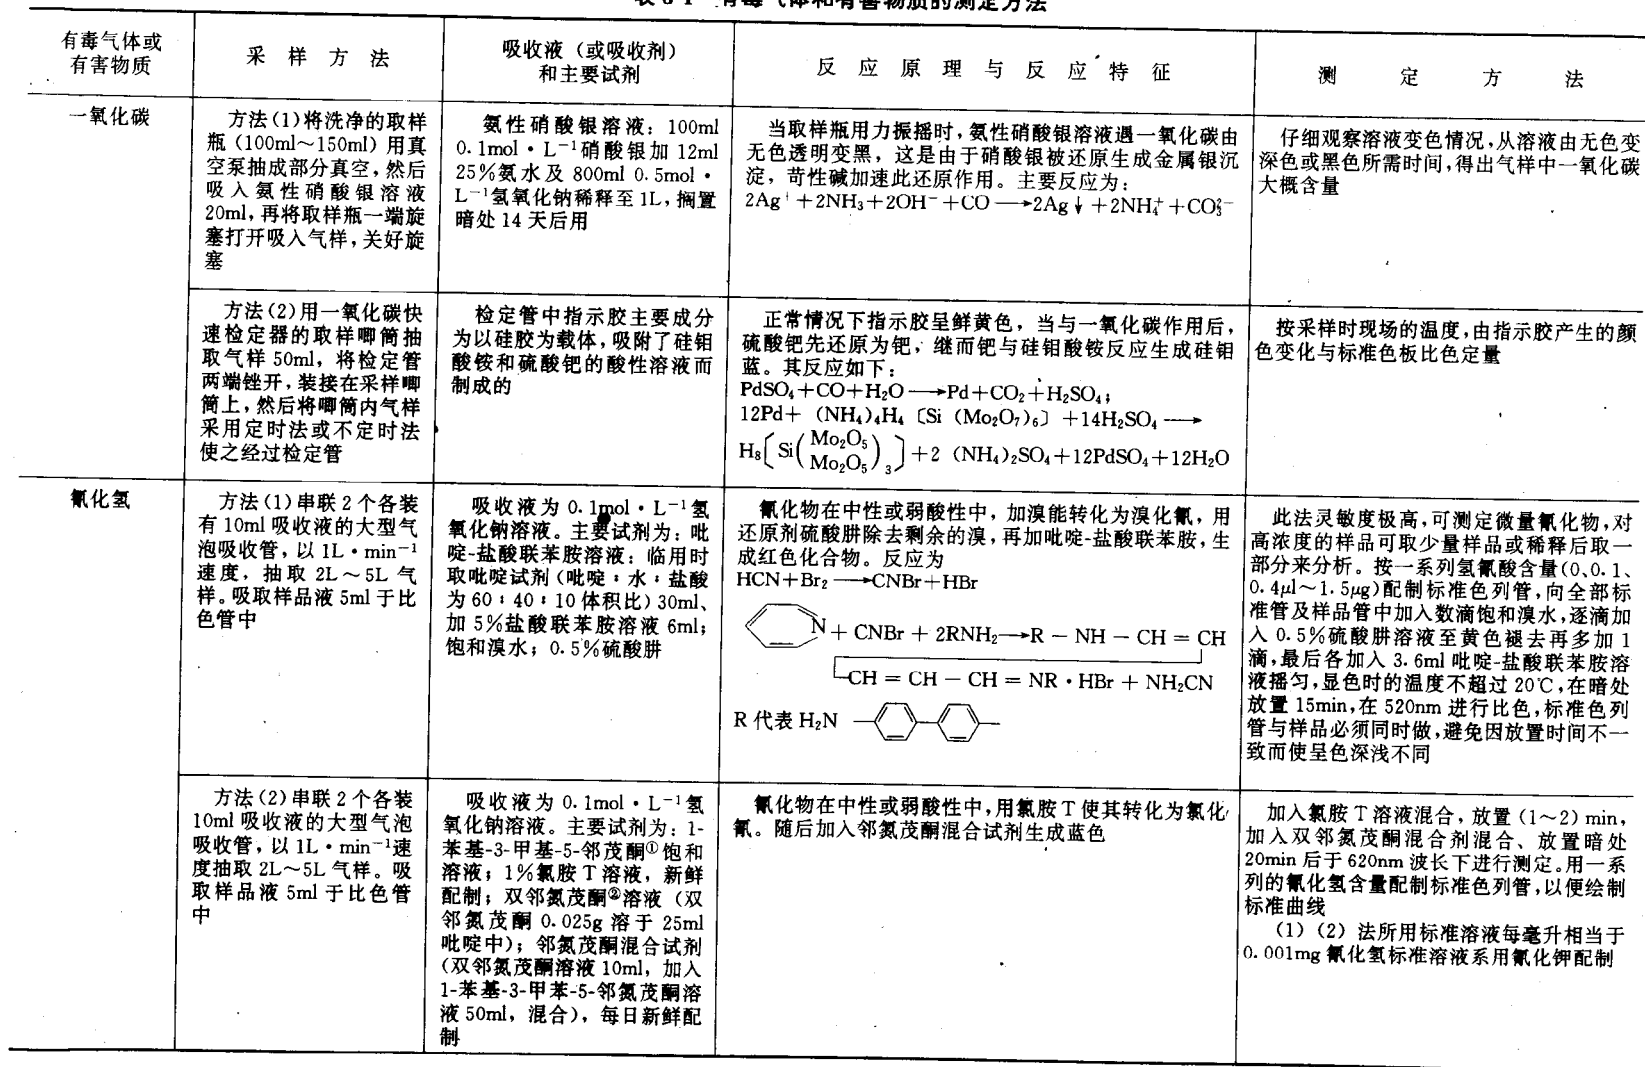 表 8-1 有毒气体和有害物质的测定方法
有毒气体或
有害物质
采 样 方 法
吸收液（或吸收剂）
和主要试剂
反 应 原 理 与 反 应 特 征
测 定 方 法
一氧化碳
方法(1)将洗净的取样
瓶(100ml～150ml)用真
空泵抽成部分真空,然后
吸入氨性硝酸银溶液
20ml,再将取样瓶一端旋
塞打开吸入气样,关好旋
塞
氨性硝酸银溶液：100ml
0.1mol·L⁻¹硝酸银加 12ml
25%氨水及 800ml 0.5mol·
L⁻¹氢氧化钠稀释至 1L，搁置
暗处 14 天后用
当取样瓶用力振摇时,氨性硝酸银溶液遇一氧化碳由
无色透明变黑，这是由于硝酸银被还原生成金属银沉
淀，苛性碱加速此还原作用。主要反应为：
2Ag⁺+2NH₃+2OH⁻+CO⟶2Ag↓+2NH₄⁺+CO₃²⁻
仔细观察溶液变色情况,从溶液由无色变
深色或黑色所需时间,得出气样中一氧化碳
大概含量
方法(2)用一氧化碳快
速检定器的取样唧筒抽
取气样 50ml，将检定管
两端锉开,装接在采样唧
筒上,然后将唧筒内气样
采用定时法或不定时法
使之经过检定管
检定管中指示胶主要成分
为以硅胶为载体，吸附了硅钼
酸铵和硫酸钯的酸性溶液而
制成的
正常情况下指示胶呈鲜黄色，当与一氧化碳作用后，
硫酸钯先还原为钯，继而钯与硅钼酸铵反应生成硅钼
蓝。其反应如下：
PdSO₄+CO+H₂O⟶Pd+CO₂+H₂SO₄；
12Pd+ (NH₄)₄H₄〔Si (Mo₂O₇)₆〕+14H₂SO₄⟶
H₈[Si(Mo₂O₅ Mo₂O₅)₃]+2 (NH₄)₂SO₄+12PdSO₄+12H₂O
按采样时现场的温度,由指示胶产生的颜
色变化与标准色板比色定量
氰化氢
方法(1)串联 2 个各装
有 10ml 吸收液的大型气
泡吸收管，以 1L·min⁻¹
速度，抽取 2L～5L 气
样。吸取样品液 5ml 于比
色管中
吸收液为 0.1mol·L⁻¹氢
氧化钠溶液。主要试剂为：吡
啶-盐酸联苯胺溶液：临用时
取吡啶试剂（吡啶：水：盐酸
为 60：40：10 体积比）30ml、
加 5%盐酸联苯胺溶液 6ml；
饱和溴水；0.5%硫酸肼
氰化物在中性或弱酸性中，加溴能转化为溴化氰，用
还原剂硫酸肼除去剩余的溴，再加吡啶-盐酸联苯胺，生
成红色化合物。反应为
HCN+Br₂⟶CNBr+HBr
N + CNBr + 2RNH₂⟶R－NH－CH＝CH
CH＝CH－CH＝NR·HBr + NH₂CN
R 代表 H₂N
此法灵敏度极高,可测定微量氰化物,对
高浓度的样品可取少量样品或稀释后取一
部分来分析。按一系列氢氰酸含量(0、0.1、
0.4μl～1.5μg)配制标准色列管,向全部标
准管及样品管中加入数滴饱和溴水,逐滴加
入 0.5%硫酸肼溶液至黄色褪去再多加 1
滴,最后各加入 3.6ml 吡啶-盐酸联苯胺溶
液摇匀,显色时的温度不超过 20℃,在暗处
放置 15min,在 520nm 进行比色,标准色列
管与样品必须同时做,避免因放置时间不一
致而使呈色深浅不同
方法(2)串联 2 个各装
10ml 吸收液的大型气泡
吸收管，以 1L·min⁻¹速
度抽取 2L～5L 气样。吸
取样品液 5ml 于比色管
中
吸收液为 0.1mol·L⁻¹氢
氧化钠溶液。主要试剂为：1-
苯基-3-甲基-5-邻茂酮①饱和
溶液；1%氯胺 T 溶液，新鲜
配制；双邻氮茂酮②溶液（双
邻氮茂酮 0.025g 溶于 25ml
吡啶中）；邻氮茂酮混合试剂
（双邻氮茂酮溶液 10ml，加入
1-苯基-3-甲苯-5-邻氮茂酮溶
液 50ml，混合），每日新鲜配
制
氰化物在中性或弱酸性中，用氯胺 T 使其转化为氯化
氰。随后加入邻氮茂酮混合试剂生成蓝色
加入氯胺 T 溶液混合，放置 (1～2) min，
加入双邻氮茂酮混合剂混合、放置暗处
20min 后于 620nm 波长下进行测定。用一系
列的氰化氢含量配制标准色列管,以便绘制
标准曲线
(1) (2) 法所用标准溶液每毫升相当于
0.001mg 氰化氢标准溶液系用氰化钾配制